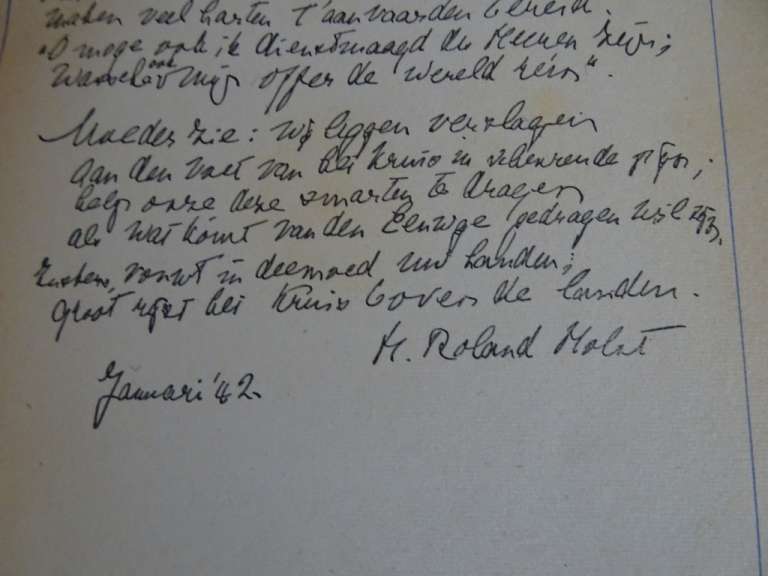 maken veel harten t'aanvaarden bereid.
"O moge ook ik dienstmaagd des Heeren zijn;
ook mijn offer de wereld rein".
Moeder zie: wij liggen verslagen
aan den voet van het Kruis in scheurende pijn;
help onze deze smarten te dragen
als wat komt van den Eeuwige gedragen wil zijn.
Zusters, vouwt in deemoed uw handen;
groot rijst het Kruis boven de landen.
H. Roland Holst
Januari '42.